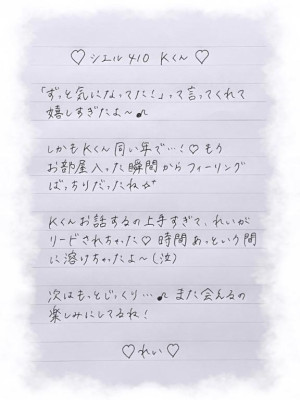 ♡ シエル410 Kくん ♡
「ずっと気になってた！」って言ってくれて
嬉しすぎたよ〜♪
しかもKくん同い年で…！♡ もう
お部屋入った瞬間からフィーリング
ばっちりだったね☆
Kくんお話するの上手すぎて、れいが
リードされちゃった♡ 時間あっという間
に溶けちゃったよ〜(泣)
次はもっとじっくり…♪ また会えるの
楽しみにしてるね！
♡れい♡